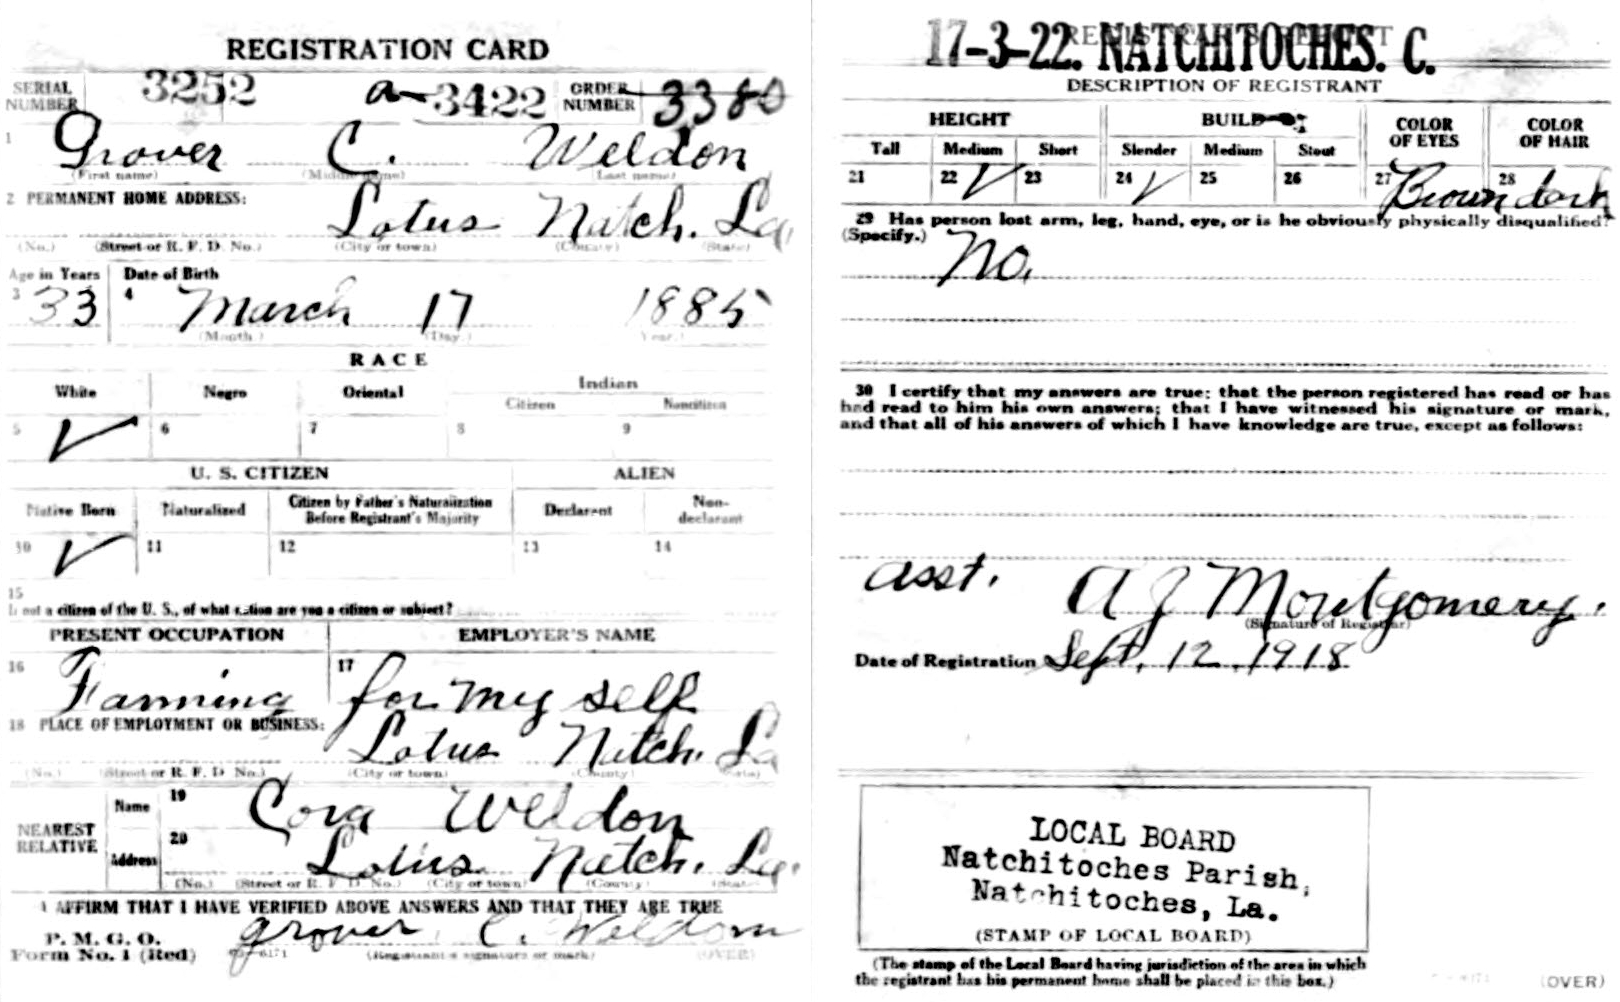 REGISTRATION CARD
SERIAL NUMBER 3252 a-3422 ORDER NUMBER 3380
1 Grover C. Weldon
(First name) (Middle name) (Last name)
2 PERMANENT HOME ADDRESS:
Lotus Natch. La
(No.) (Street or R. F. D. No.) (City or town) (County) (State)
Age in Years Date of Birth
3 33 4 March 17 1885
(Month.) (Day.) (Year.)
RACE
White Negro Oriental Indian
Citizen Noncitizen
5 ✓ 6 7 8 9
U. S. CITIZEN ALIEN
Native Born Naturalized Citizen by Father's Naturalization Before Registrant's Majority Declarant Non-declarant
10 ✓ 11 12 13 14
15
If not a citizen of the U. S., of what nation are you a citizen or subject?
PRESENT OCCUPATION EMPLOYER'S NAME
16 Farming 17 for my self
18 PLACE OF EMPLOYMENT OR BUSINESS:
Lotus Natch. La
(No.) (Street or R. F. D. No.) (City or town) (County) (State)
NEAREST RELATIVE
Name 19 Cora Weldon
Address 20 Lotus Natch. La.
(No.) (Street or R. F. D. No.) (City or town) (County) (State)
I AFFIRM THAT I HAVE VERIFIED ABOVE ANSWERS AND THAT THEY ARE TRUE
P. M. G. O.
Form No. 1 (Red) Grover C. Weldon
(Registrant's signature or mark) (OVER)
REGISTRAR'S REPORT
17-3-22. NATCHITOCHES. C.
DESCRIPTION OF REGISTRANT
HEIGHT BUILD COLOR OF EYES COLOR OF HAIR
Tall Medium Short Slender Medium Stout
21 22 ✓ 23 24 ✓ 25 26 27 Brown 28 dark
29 Has person lost arm, leg, hand, eye, or is he obviously physically disqualified?
(Specify.) No.
30 I certify that my answers are true; that the person registered has read or has
had read to him his own answers; that I have witnessed his signature or mark,
and that all of his answers of which I have knowledge are true, except as follows:
asst. A J Montgomery.
(Signature of Registrar)
Date of Registration Sept. 12, 1918
LOCAL BOARD
Natchitoches Parish,
Natchitoches, La.
(STAMP OF LOCAL BOARD)
(The stamp of the Local Board having jurisdiction of the area in which
the registrant has his permanent home shall be placed in this box.)
(OVER)